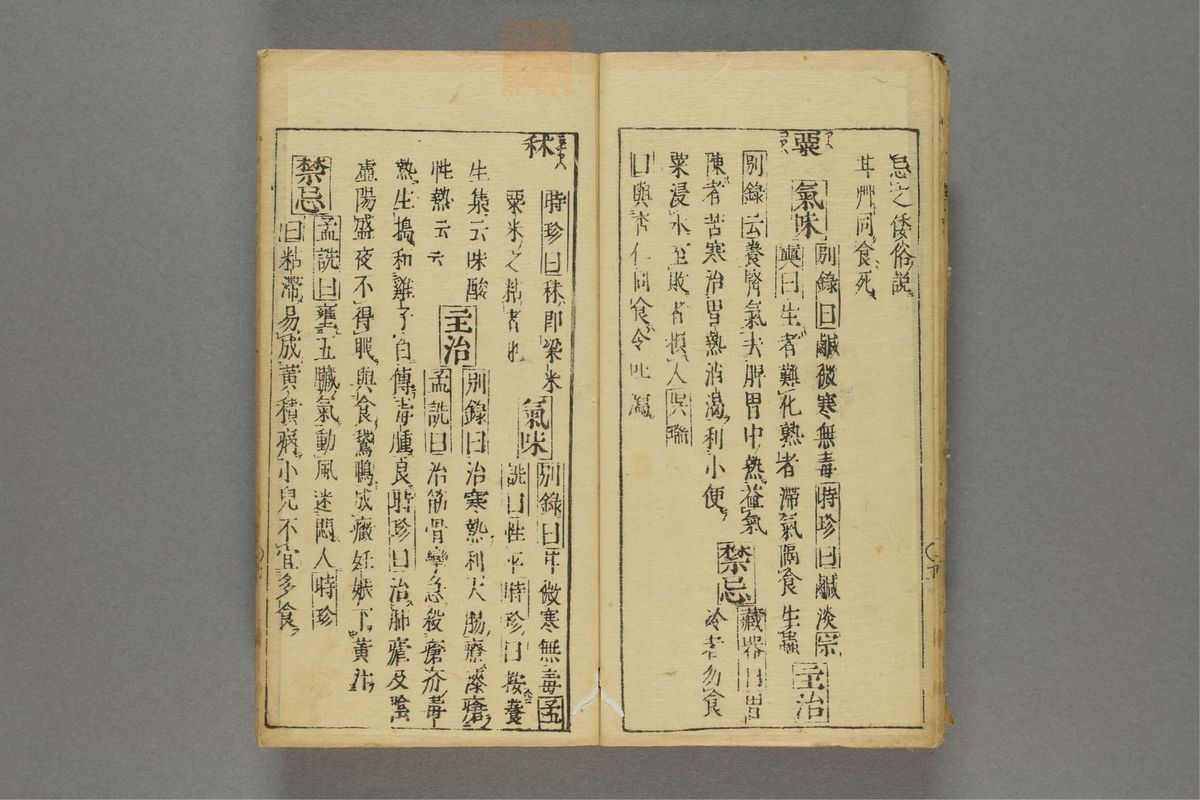 忌之倭俗説
甘艸同食死
粟
氣味
別錄曰鹹微寒無毒時珍曰鹹淡宗
奭曰生者難化熟者滯氣隔食生蟲
主治
別錄云養腎氣去脾胃中熱益氣
陳者苦寒治胃熱消渴利小便
禁忌
藏器曰胃
冷者勿食
粟浸水至敗者損人吳瑞
曰與杏仁同食令吐瀉
秫
時珍曰秫即梁米
粟米之粘者也
氣味
別錄曰甘微寒無毒孟
詵曰性平時珍曰按養
生集云味酸
性熱云云
主治
別錄曰治寒熱利大腸療漆瘡
孟詵曰治筋骨攣急殺瘡疥毒
熱生搗和雞子白傅毒腫良時珍曰治肺瘧及陰
虛陽盛夜不得眠與食鵞鴨成癥妊娠下黃汁
禁忌
孟詵曰壅五臟氣動風迷悶人時珍
曰粘滯易成黃積病小兒不宜多食